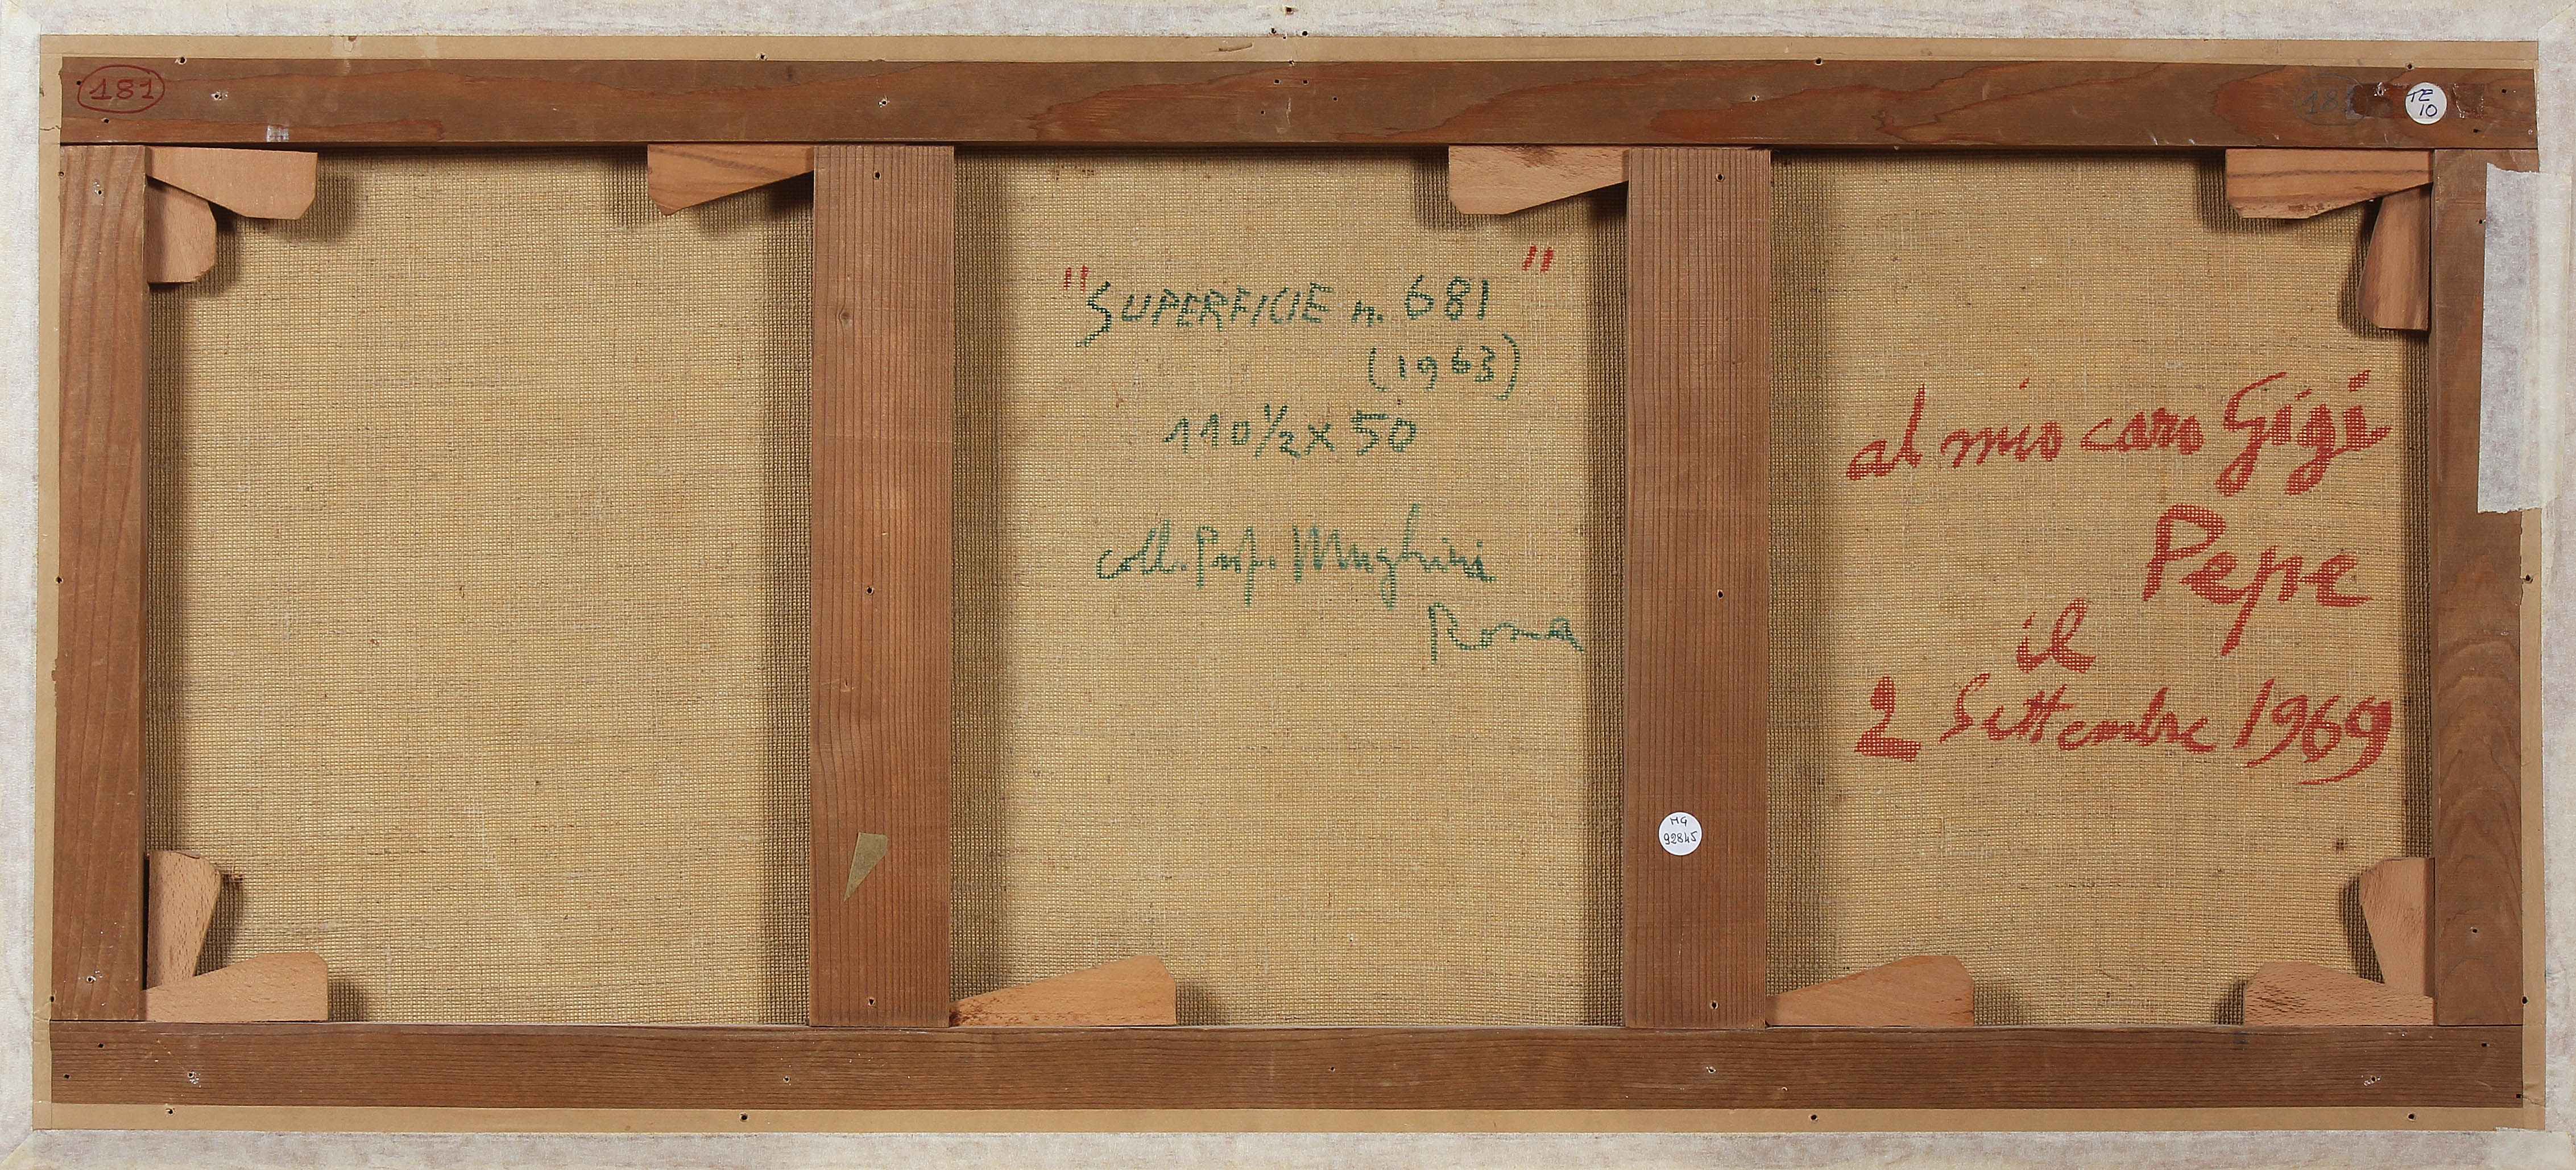 181
TE
10
"SUPERFICIE n. 681"
(1963)
110 ½ x 50
coll. Prof. Mughini
Roma
al mio caro Gigi
Pepe
il
2 Settembre 1969
MG
92845